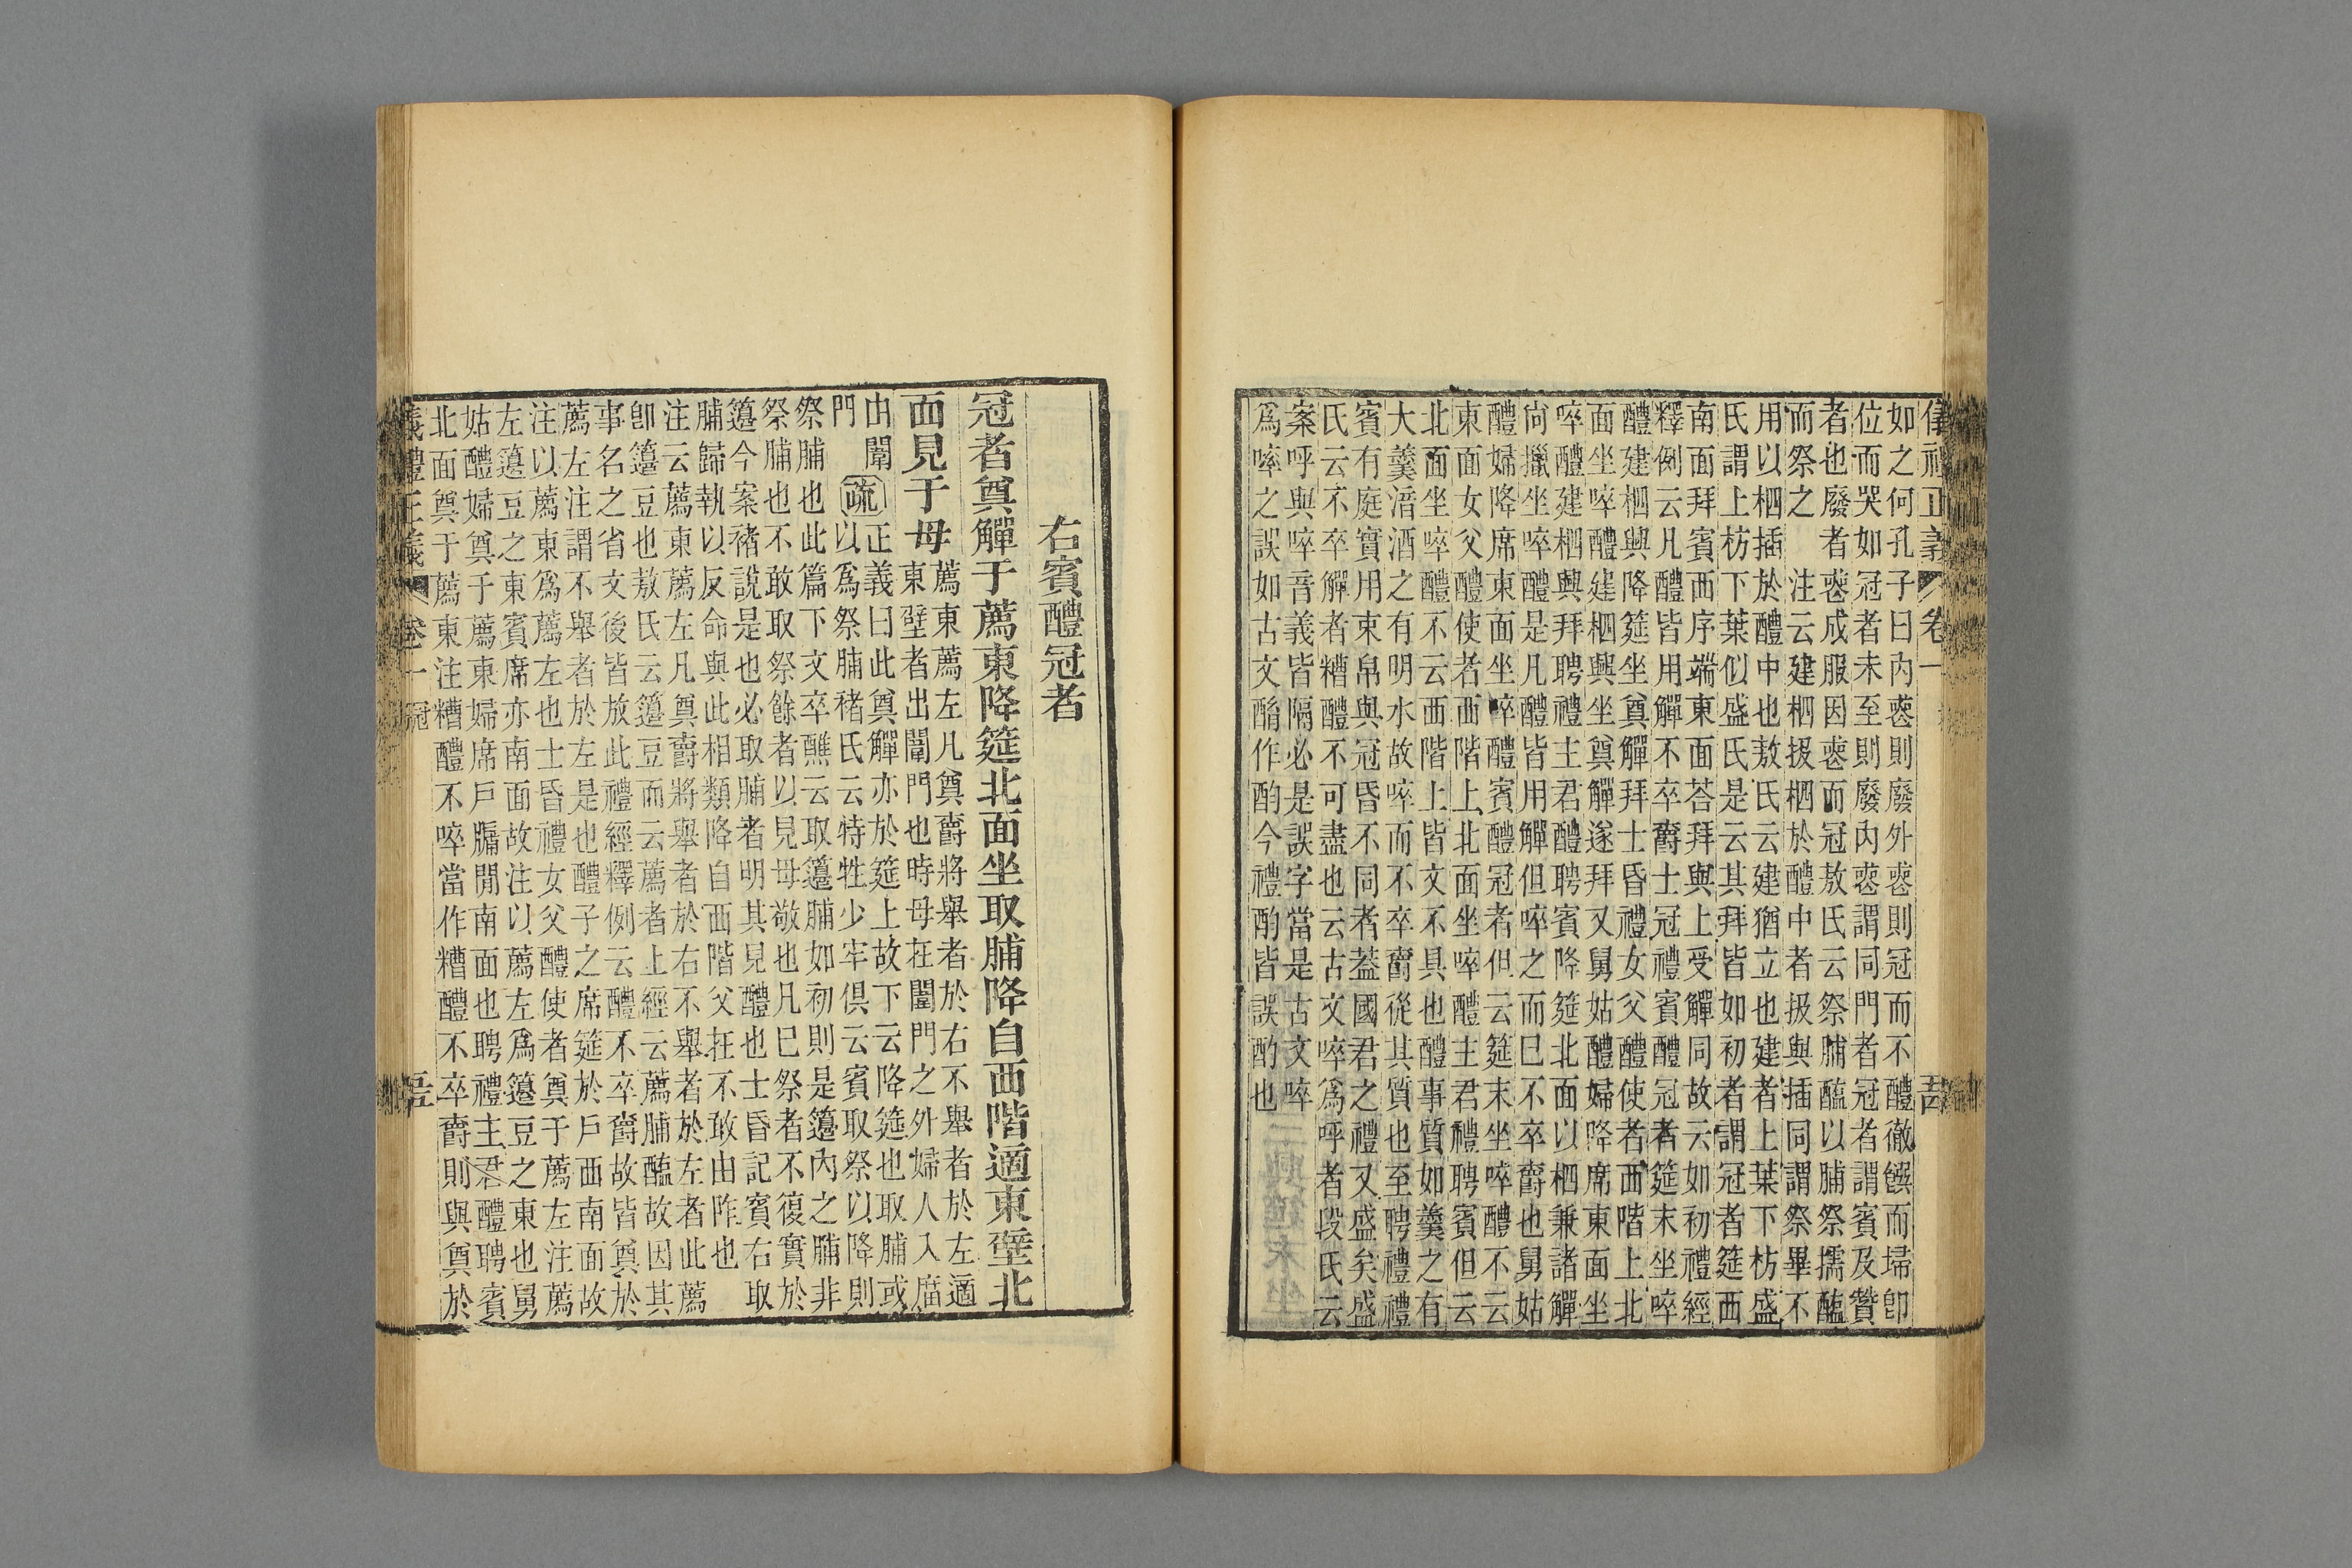 儀禮正義 卷一
如之何孔子曰內䘮則廢外䘮則冠而不醴徹饌而埽卽
位而哭如冠者未至則廢內䘮謂同門者冠者謂賓及贊
者也廢者䘮成服因䘮而冠敖氏云祭脯醢以脯祭擩醢
而祭之　注云建柶扱柶於醴中者扱與插同謂祭畢不
用以柶插於醴中也敖氏云建猶立也建者上葉下枋盛
氏謂上枋下葉似盛氏是云其拜皆如初者謂冠者筵西
南面拜賓西序端東面荅拜與上受觶同故云如初禮經
釋例云凡醴皆用觶不卒爵士冠禮賓醴冠者筵末坐啐
醴建柶興降筵坐奠觶拜士昏禮女父醴使者西階上北
面坐啐醴建柶興坐奠觶遂拜又舅姑醴婦降席東面坐
啐醴建柶興拜聘禮主君醴聘賓降筵北面以柶兼諸觶
尚擸坐啐醴是凡醴皆用觶但啐之而已不卒爵也舅姑
醴婦降席東面坐啐醴賓醴冠者但云筵末坐啐醴不云
東面女父醴使者西階上北面坐啐醴主君禮聘賓但云
北面坐啐醴不云西階上皆文不具也醴事質如羹之有
大羹湇酒之有明水故啐而不卒爵從其質也至聘禮禮
賓有庭實用束帛與冠昏不同者葢國君之禮又盛矣盛
氏云不卒觶者糟醴不可盡也云古文啐爲呼者段氏云
案呼與啐音義皆隔必是誤字當是古文啐
爲啐之誤如古文酳作酌今禮酌皆誤酌也
右賓醴冠者
冠者奠觶于薦東降筵北面坐取脯降自西階適東壁北
面見于母
薦東薦左凡奠爵將舉者於右不舉者於左適
東壁者出闈門也時母在闈門之外婦人入廟
由闈門
疏
正義曰此奠觶亦於筵上故下云降筵也取脯或
以爲祭脯褚氏云特牲少牢俱云賓取祭以降則
祭脯也此篇下文卒醮云取籩脯如初則是籩內之脯非
祭脯也不敢取祭餘者以見母敬也凡已祭者不復實於
籩今案褚說是也必取脯者明其見醴也士昏記賓右取
脯歸執以反命與此相類降自西階父在不敢由阼也
注云薦東薦左凡奠爵將舉者於右不舉者於左者此薦
卽籩豆也敖氏云籩豆而云薦者上經云薦脯醢故因其
事名之省文後皆放此禮經釋例云醴不卒爵故皆奠於
薦左注謂不舉者於左是也醴子之席筵於戶西南面故
注以薦東爲薦左也士昏禮女父醴使者奠于薦左注薦
左籩豆之東賓席亦南面故注以薦左爲籩豆之東也舅
姑醴婦奠于薦東婦席戶牖閒南面也聘禮主君醴聘賓
北面奠于薦東注糟醴不啐當作糟醴不卒爵則與奠於
儀禮正義 卷一 冠